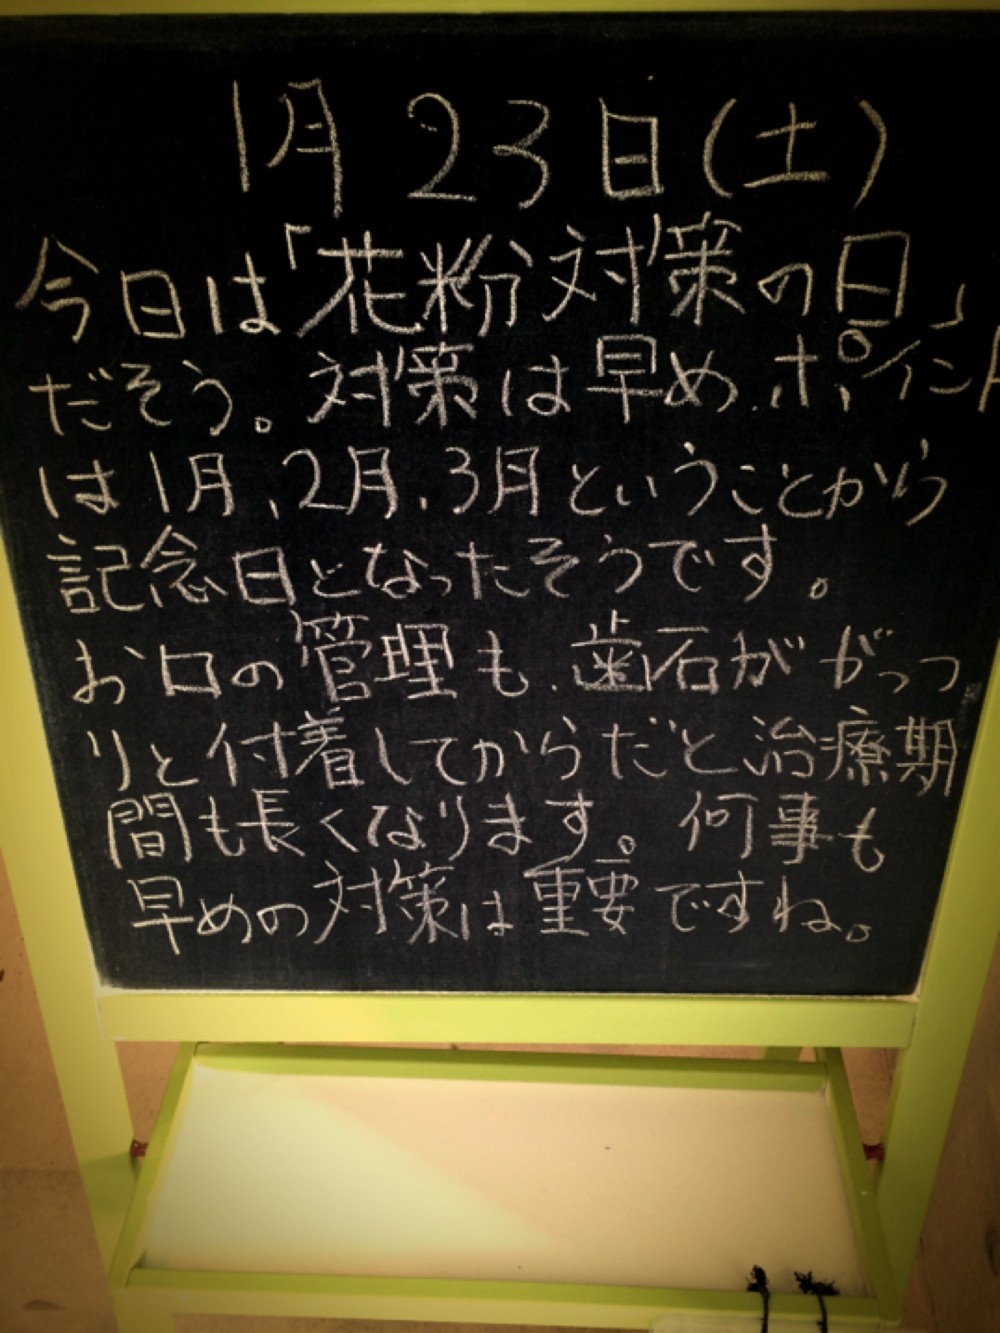 1月23日(土)
今日は「花粉対策の日」
だそう。対策は早め、ポイント
は1月、2月、3月ということから
記念日となったそうです。
お口の管理も、歯石ががっつ
りと付着してからだと治療期
間も長くなります。何事も
早めの対策は重要ですね。